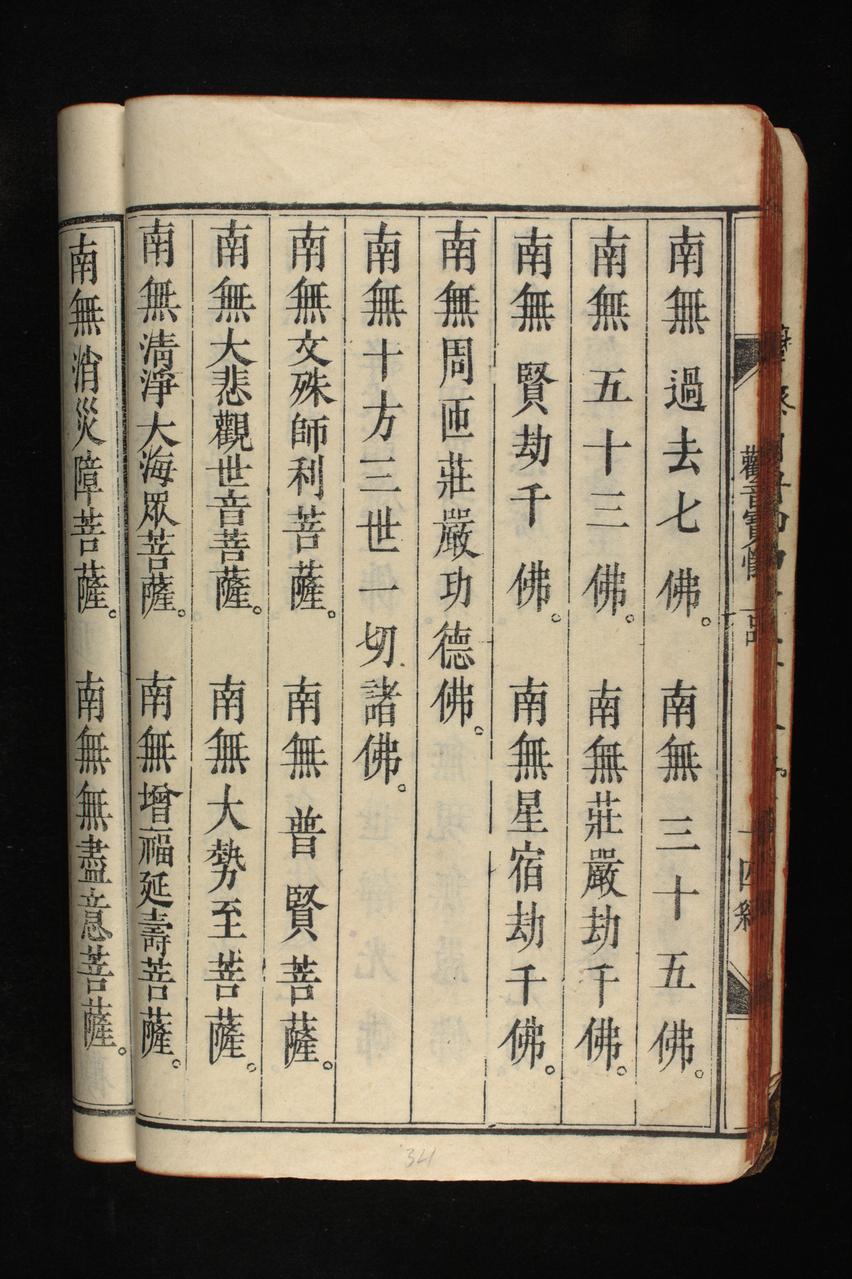 南無過去七佛。南無三十五佛。
南無五十三佛。南無莊嚴劫千佛。
南無賢劫千佛。南無星宿劫千佛。
南無周匝莊嚴功德佛。
南無十方三世一切諸佛。
南無文殊師利菩薩。南無普賢菩薩。
南無大悲觀世音菩薩。南無大勢至菩薩。
南無清淨大海眾菩薩。南無增福延壽菩薩。
南無消災障菩薩。南無無盡意菩薩。
341